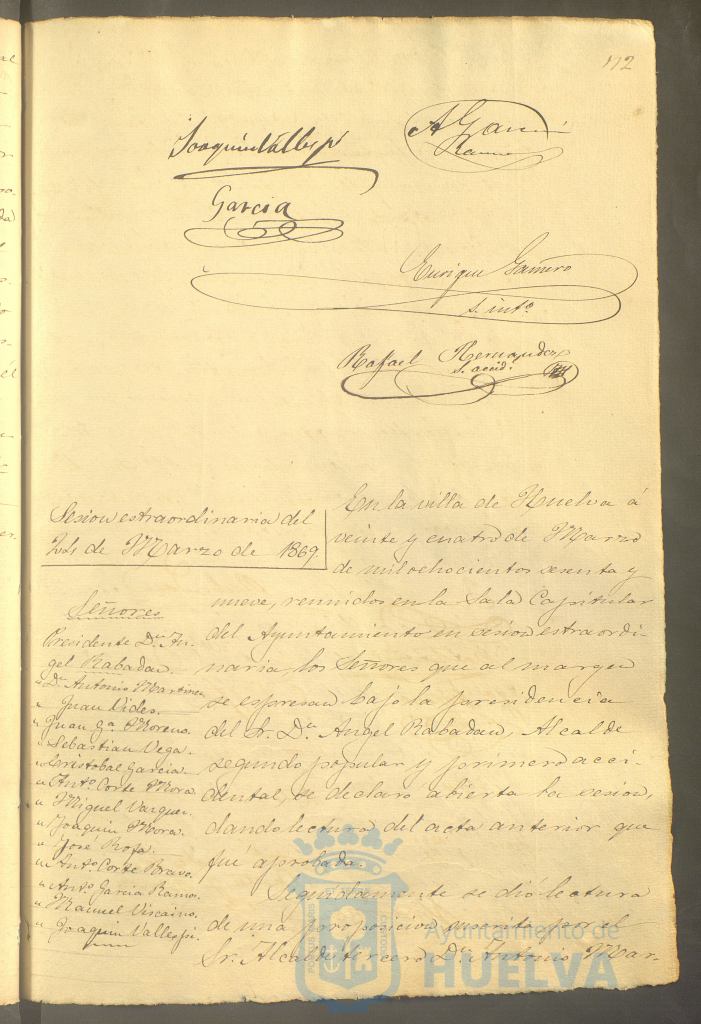 172
Joaquin Vallespi
A Garcia
Ramos
Garcia
Enrique Gamero
s. intº
Rafael Hernandez
s. accidl
Sesion estraordinaria del
24 de Marzo de 1869.
Señores
Presidente Dn. An-
gel Rabadan.
" Dn. Antonio Martinez
" Juan Vides.
" Juan Ga. Moreno.
" Sebastian Vega.
" Cristobal Garcia.
" Antº. Corte Mora.
" Miguel Vazquez.
" Joaquin Mora.
" Jose Rofa.
" Antº. Corte Bravo.
" Antº. Garcia Ramos.
" Manuel Viscaino.
" Joaquin Vallespi.
En la villa de Huelva á
veinte y cuatro de Marzo
de mil ochocientos sesenta y
nueve, reunidos en la Sala Capitular
del Ayuntamiento en sesion estraordi-
naria los Señores que al margen
se espresan bajo la presidencia
del Sr. Dn. Angel Rabadan, Alcalde
segundo popular y primero acci-
dental, se declaro abierta la sesion,
dando lectura del acta anterior que
fué aprobada.
Seguidamente se dió lectura
de una proposicion suscrita por el
Sr. Alcalde tercero Dn. Antonio Mar-
Ayuntamiento de
HUELVA